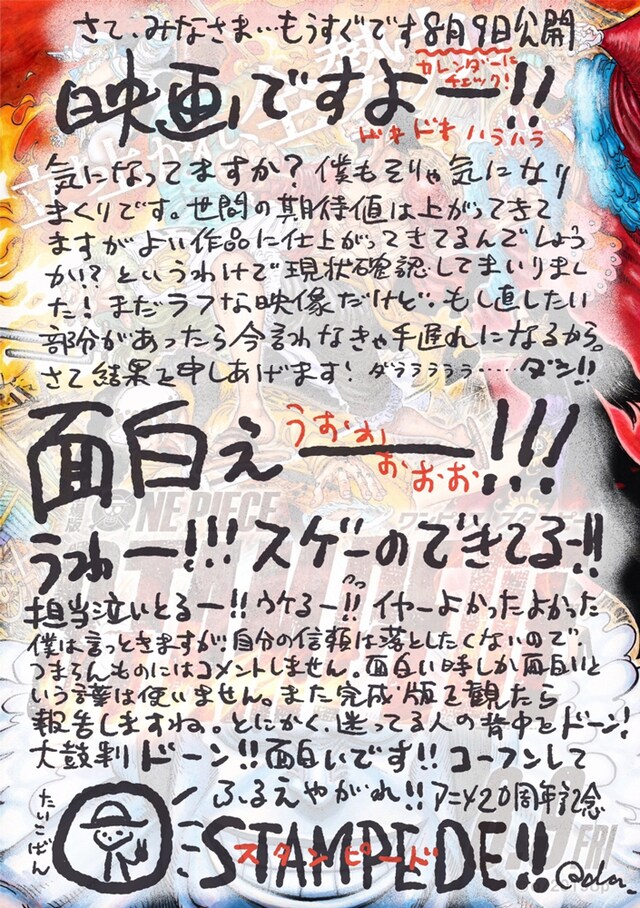 さて、みなさま…もうすぐです8月9日公開
カレンダーに
チェック!
映画ですよー!!
ドキドキ ハラハラ
気になってますか?僕もそりゃ気になり
まくりです。世間の期待値は上がってきて
ますがよい作品に仕上がってきてるんでしょう
かい?というわけで現状確認してまいりまし
た!まだラフな映像だけど、もし直したい
部分があったら今言わなきゃ手遅れになるから。
さて結果を申しあげます!ダララララララ……ダン!!
面白ぇーー!!!
うおおぉ
おおおお
うわー!!!スゲーのできてるー!!
担当泣いとるー!!ウケるー!!イヤーよかったよかった
僕は言っときますが、自分の信頼は落としたくないので
つまらんものにはコメントしません。面白い時しか面白いと
いう言葉は使いません。また完成版を観たら
報告しますね。とにかく、迷ってる人の背中をドーン!
太鼓判ドーン!!面白いです!!コーフンして
ふるえやがれ!!アニメ20周年記念
たいこばん
STAMPEDE!!
スタンピード
Oda
ONE PIECE
FRI